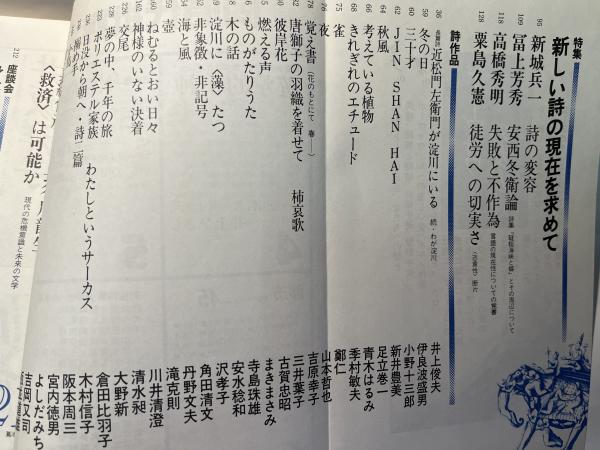 特集
新しい詩の現在を求めて
95 新城兵一 詩の変容
109 冨上芳秀 安西冬衛論 詩集「韃靼海峡と蝶」とその周辺について
118 高橋秀明 失敗と不作為 言語の現在性についての覚書
128 粟島久憲 徒労への切実さ
詩作品
36 長篇詩 近松門左衛門が淀川にいる 続・わが淀川 井上俊夫
59 冬の日 伊良波盛男
60 三十才 小野十三郎
62 JIN SHAN HAI 新井豊美
64 秋風 足立巻一
66 考えている植物 青木はるみ
68 きれぎれのエチュード 季村敏夫
75 雀 鄭仁
夜 山本哲也
78 覚え書 (花のもとにて 春——) 吉原幸子
唐獅子の羽織を着せて 柿哀歌 三井葉子
彼岸花 古賀忠昭
燃える声 まきまさみ
ものがたりうた 寺島珠雄
木の話 安水稔和
淀川に〈藻〉たつ 沢孝子
非象徴・非記号 角田清文
海と風 丹野文夫
壺 滝克則
ねむるとおい日々 川井清澄
神様のいない決着 清水昶
交尾 大野新
夢の中、千年の旅 倉田比羽子
ポリエステル家族 わたしというサーカス 木村信子
日没から朝へ・詩二篇 阪本周三
搦め手 宮内徳男
よしだみち
吉岡又司
212 座談会
〈救済〉は可能か
現代の危機意識と未来の文学